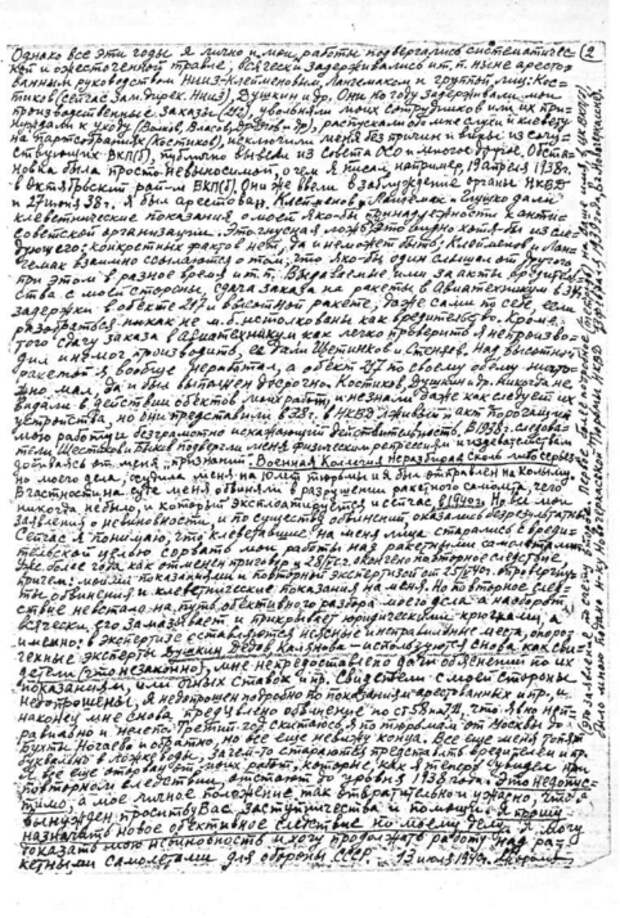 Однако все эти годы я лично и мои работы подвергались систематичес- (2
кой и ожесточенной травле; всячески задерживались и т.п. ныне аресто-
ванным руководством НИИ3-Клейменовым, Лангемаком и группой лиц: Кос-
тиков (сейчас зам. дирек. НИИ3), Душкин и др. Они по году задерживали мои
производственные заказы (212), увольняли моих сотрудников или их при-
нуждали к уходу (Волков, Власов, и др), распускали обо мне слухи и клевету
на партсобраниях (Костиков), исключили меня без причин и веры из сочу-
ствующих ВКП(б), публично вывели из Совета ОСО и многое другое. Обста-
новка была просто невыносимой, о чем я писал, например, 19 апреля 1938г.
в Октябрьский рай-м ВКП(б). Они же ввели в заблуждение органы НКВД
и 27 июня 38г. я был арестован. Клейменов, Лангемак и Глушко дали
клеветнические показания о моей яко-бы принадлежности к анти-
советской организации. Это гнусная ложь. Это видно хотя-бы из сле-
дующего: конкретных фактов нет, да и не может быть; Клейменов и Ланге-
мак взаимно ссылаются о том, что яко-бы один слышал от другого
при этом в разное время и т.п. Выдаваемые ими за акты вредитель-
ства с моей стороны, сдача заказа на ракеты в Авиатехникум в
задержки в обекте 217 и высотной ракете, даже сами по себе, если
разобраться, никак не м.б. истолкованы как вредительство. Кроме
того сдачу заказа в авиатехникум как легко проверить я не произво-
дил и не мог производить, ее дали Щетинков и Стеняев. Над высотной
ракетой я вообще не работал, а обект 217 по своему обему ничто-
жно мал, да и был выполнен досрочно. Костиков, Душкин и др. никогда не
видали в действии обектов моих работ, и не знали даже как следует их
устройства, но они представили в 38г. в НКВД лживый акт порочащий
мою работу и безграмотно искажающий действительность. В 1938г. следова-
тели Шестаков и Быков подвергли меня физическим репрессиям и издевательствам
добиваясь от меня „признаний". Военная Коллегия не разбирая сколь либо серьез-
но моего дела, осудила меня на 10 лет тюрьмы и я был отправлен на Колыму.
В частности на суде меня обвиняли в разрушении ракетного самолета, чего
никогда не было, и который эксплоатируется и сейчас в 1940г. Но все мои
заявления о невиновности, и по существу обвинений оказались безрезультатны
Сейчас я понимаю, что клеветавшие на меня лица старались с вреди-
тельской целью сорвать мои работы над ракетными самолетами
Уже более года как отменен приговор и 28/V с.г. окончено повторное следствие,
причем: моими показаниями и повторной экспертизой от 25/V 40г. опровергну-
ты обвинения и клеветнические показания на меня. Но повторное след-
ствие не встало на путь обективного разбора моего дела а наоборот
всячески его замазывает и прикрывает юридическими крючками, а
именно: в экспертизе оставляются неясные и неправильные места, опоро-
ченные эксперты Душкин Дедов Калянова - используются снова как сви-
детели (что незаконно), мне не предоставлено дачи обяснений по их
показаниям, или очных ставок и пр. Свидетели с моей стороны
недопрошены, я недопрошен подробно по показаниям арестованных и пр., и
наконец мне снова предъявлено обвинение по ст 58 п. 7, 11, что явно неп-
равильно и нелепо. Третий год скитаюсь я по тюрьмам от Москвы до
бухты Ногаево и обратно, но все еще невижу конца. Все еще меня топят
буквально в ложке воды, зачем-то стараются представить вредителем и пр.
Я все еще оторван от моих работ, которые, как я теперь увидел при
повторном следствии, отстают до уровня 1938 года. Это недопус-
тимо, а мое личное положение так отвратительно и ужасно, что я
вынужден просить у Вас заступничества и помощи. Я прошу
назначить новое обективное следствие по моему делу. Я могу
доказать мою невиновность и хочу продолжать работу над ра-
кетными самолетами для обороны СССР. 13 июля 1940г. Королев
Это заявление по счету второе. Первое более подробное на Ваше имя
было мною подано н-ку Новочеркасской тюрьмы НКВД 1939 года в г. Новочеркасске.